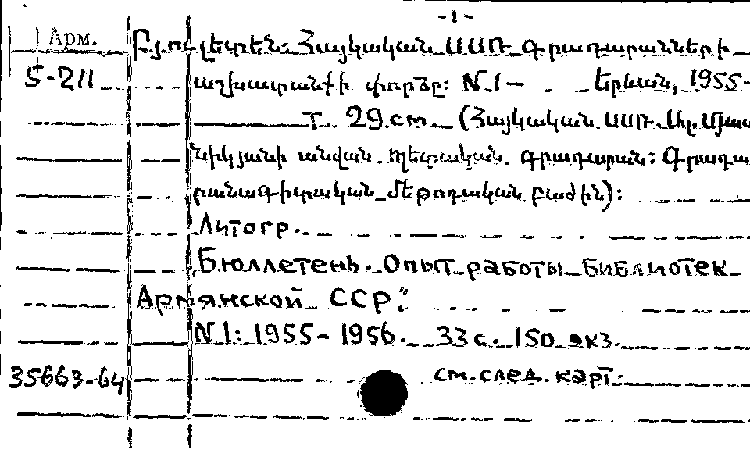 -1-
Арм. Բյուլետեն: Հայկական ՍՍՌ գրադարանների
5-211 աշխատանքի փորձը: N.1- Երևան, 1955-
т. 29.cm. (Հայկական ՍՍՌ Ալ. Մյաս
նիկյանի անվան պետական գրադարան: Գրադա
րանագիտական մեթոդական բաժին):
Литогр.
"Бюллетень. Опыт работы библиотек
Армянской ССР".
N1: 1955-1956. 33с. 150 экз.
35663-64 см. след. карт.